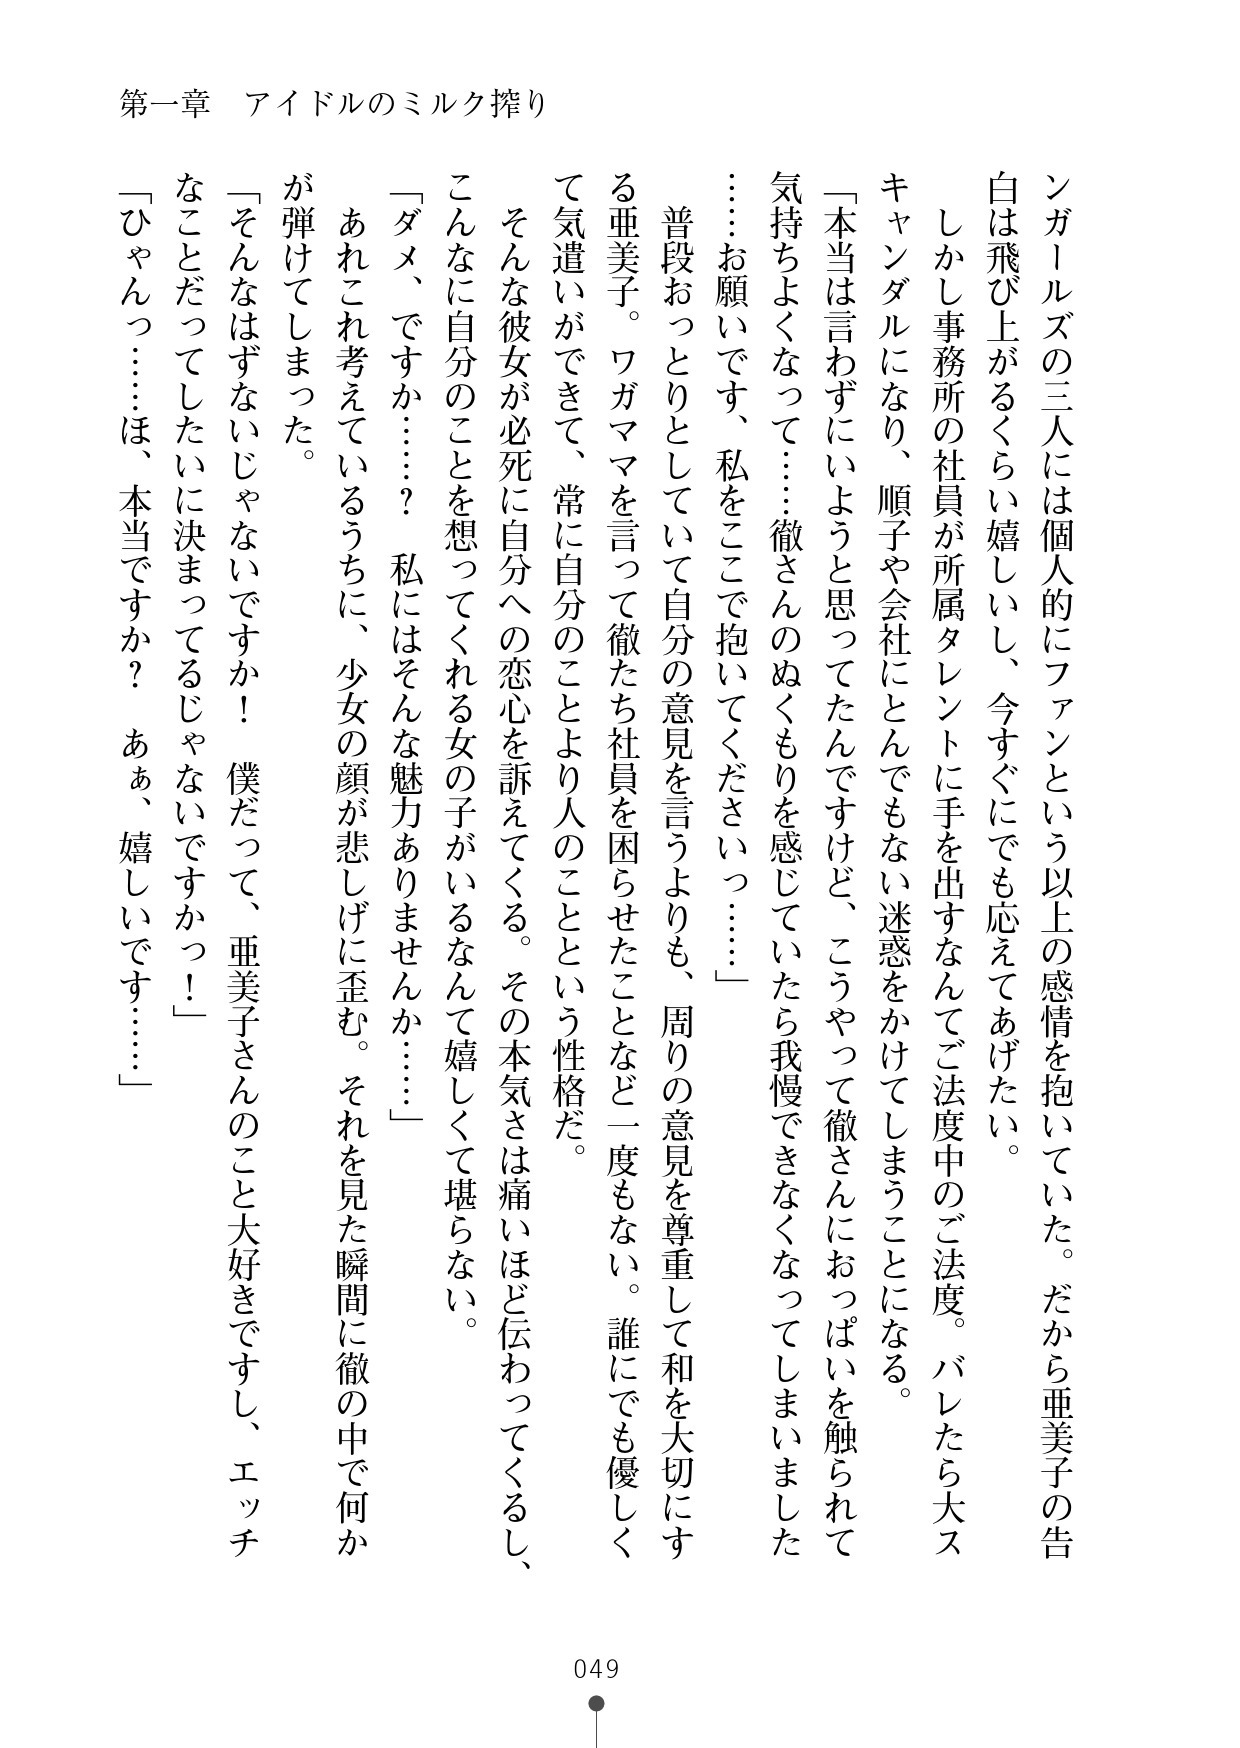 第一章　アイドルのミルク搾り
ンガールズの三人には個人的にファンという以上の感情を抱いていた。だから亜美子の告
白は飛び上がるくらい嬉しいし、今すぐにでも応えてあげたい。
　しかし事務所の社員が所属タレントに手を出すなんてご法度中のご法度。バレたら大ス
キャンダルになり、順子や会社にとんでもない迷惑をかけてしまうことになる。
「本当は言わずにいようと思ってたんですけど、こうやって徹さんにおっぱいを触られて
気持ちよくなって……徹さんのぬくもりを感じていたら我慢できなくなってしまいました
……お願いです、私をここで抱いてくださいっ……」
　普段おっとりとしていて自分の意見を言うよりも、周りの意見を尊重して和を大切にす
る亜美子。ワガママを言って徹たち社員を困らせたことなど一度もない。誰にでも優しく
て気遣いができて、常に自分のことより人のことという性格だ。
　そんな彼女が必死に自分への恋心を訴えてくる。その本気さは痛いほど伝わってくるし、
こんなに自分のことを想ってくれる女の子がいるなんて嬉しくて堪らない。
「ダメ、ですか……？　私にはそんな魅力ありませんか……」
　あれこれ考えているうちに、少女の顔が悲しげに歪む。それを見た瞬間に徹の中で何か
が弾けてしまった。
「そんなはずないじゃないですか！　僕だって、亜美子さんのこと大好きですし、エッチ
なことだってしたいに決まってるじゃないですかっ！」
「ひゃんっ……ほ、本当ですか？　あぁ、嬉しいです……」
049